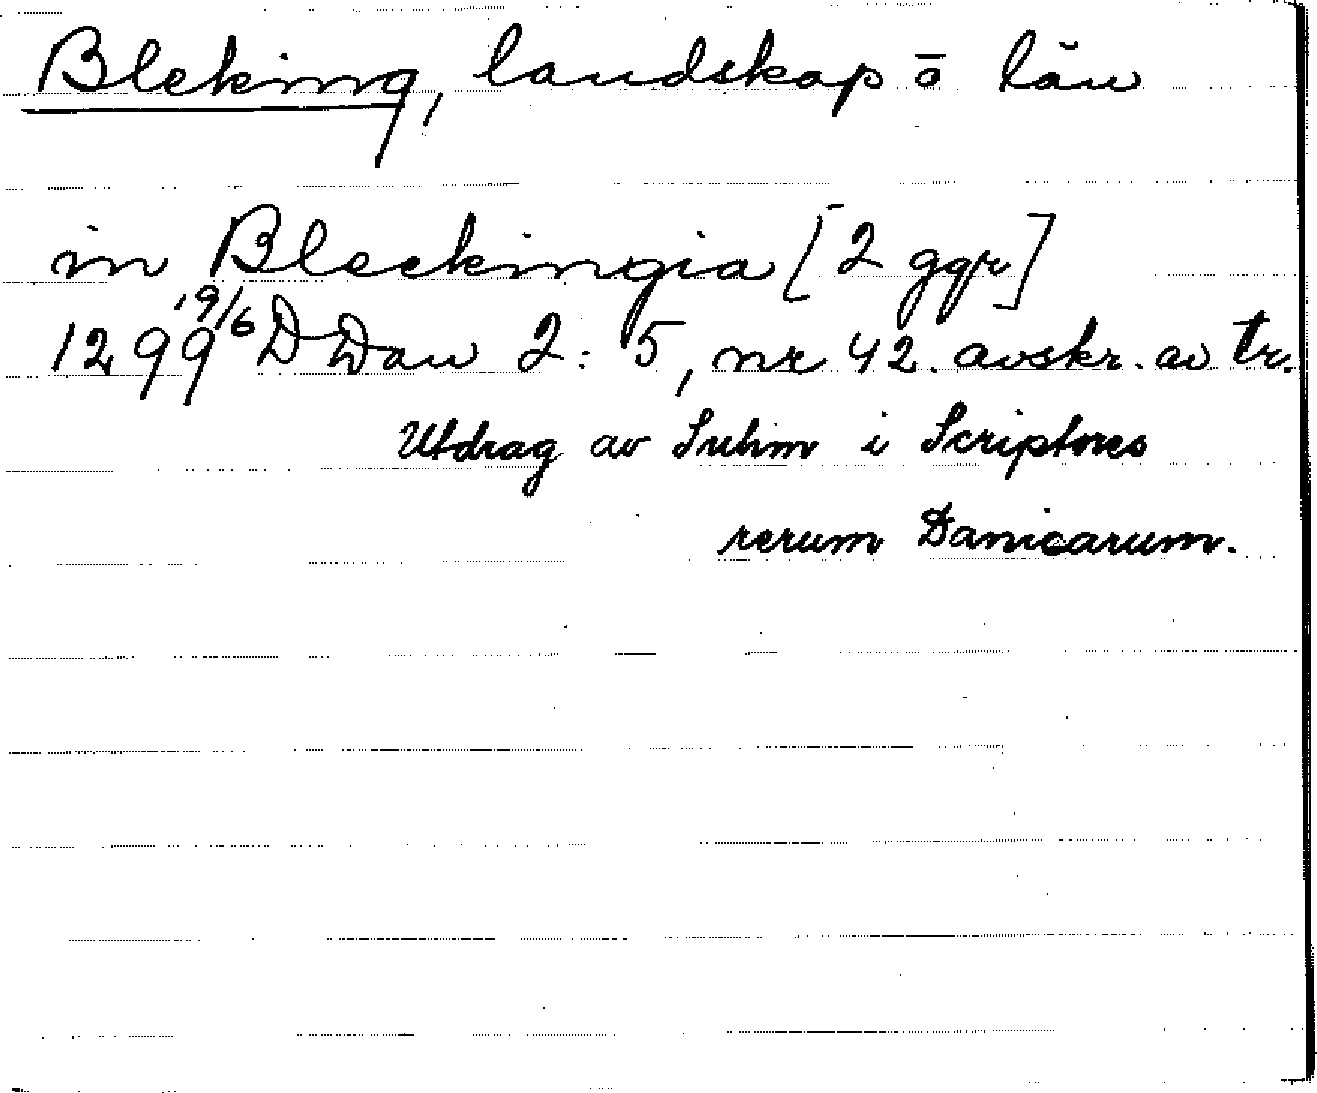 Bleking, landskap o län
in Bleckingia [2 ggr]
1299 19/6 DDan 2: 5, nr 42. avskr. av tr.
Utdrag av Suhm i Scriptores
rerum Danicarum.